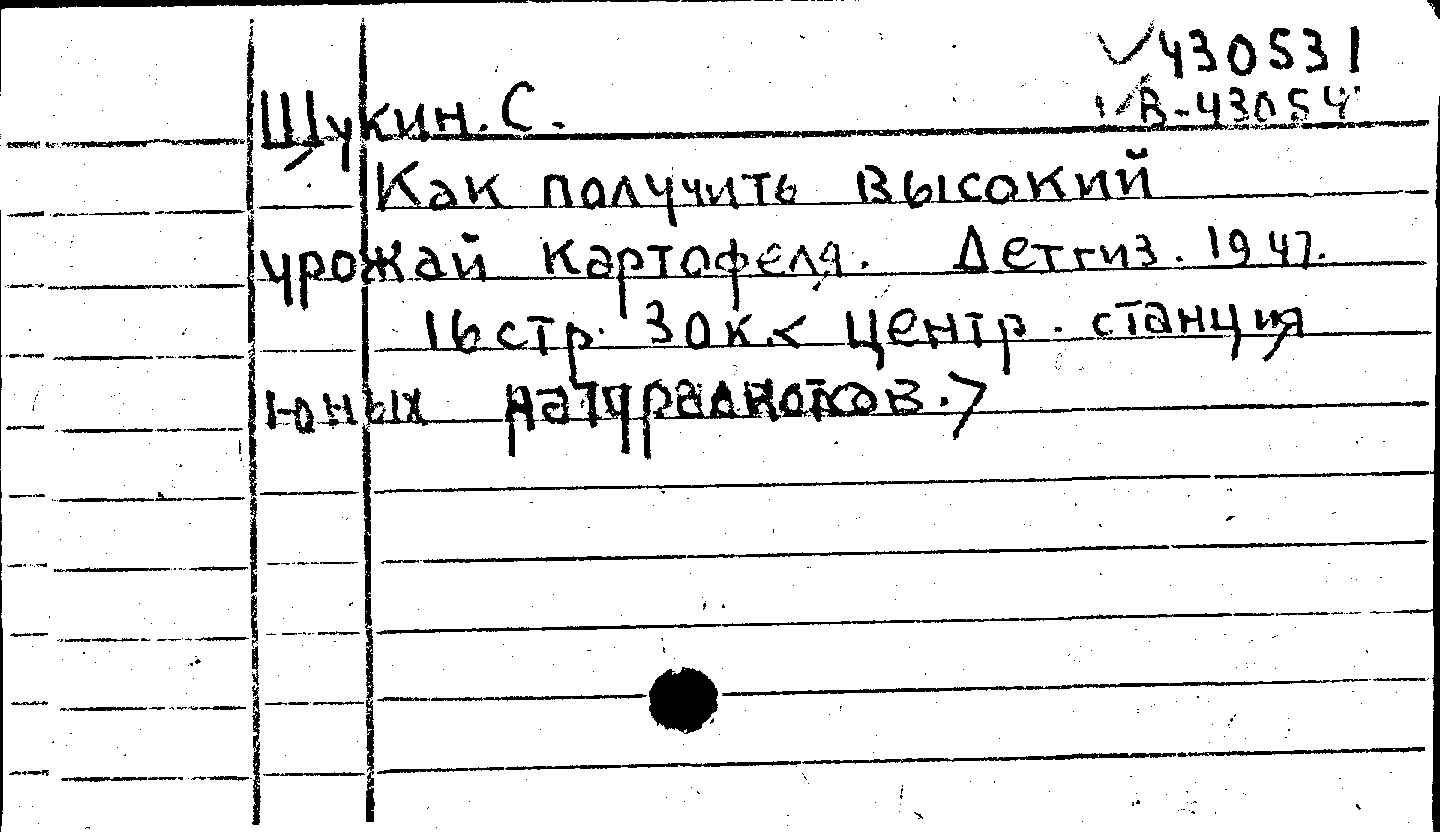 430531
В-43054
Щукин. С.
Как получить высокий
урожай картофеля. Детгиз. 1947.
16 стр. 30к. < Центр. станция
юных натуралистов. >